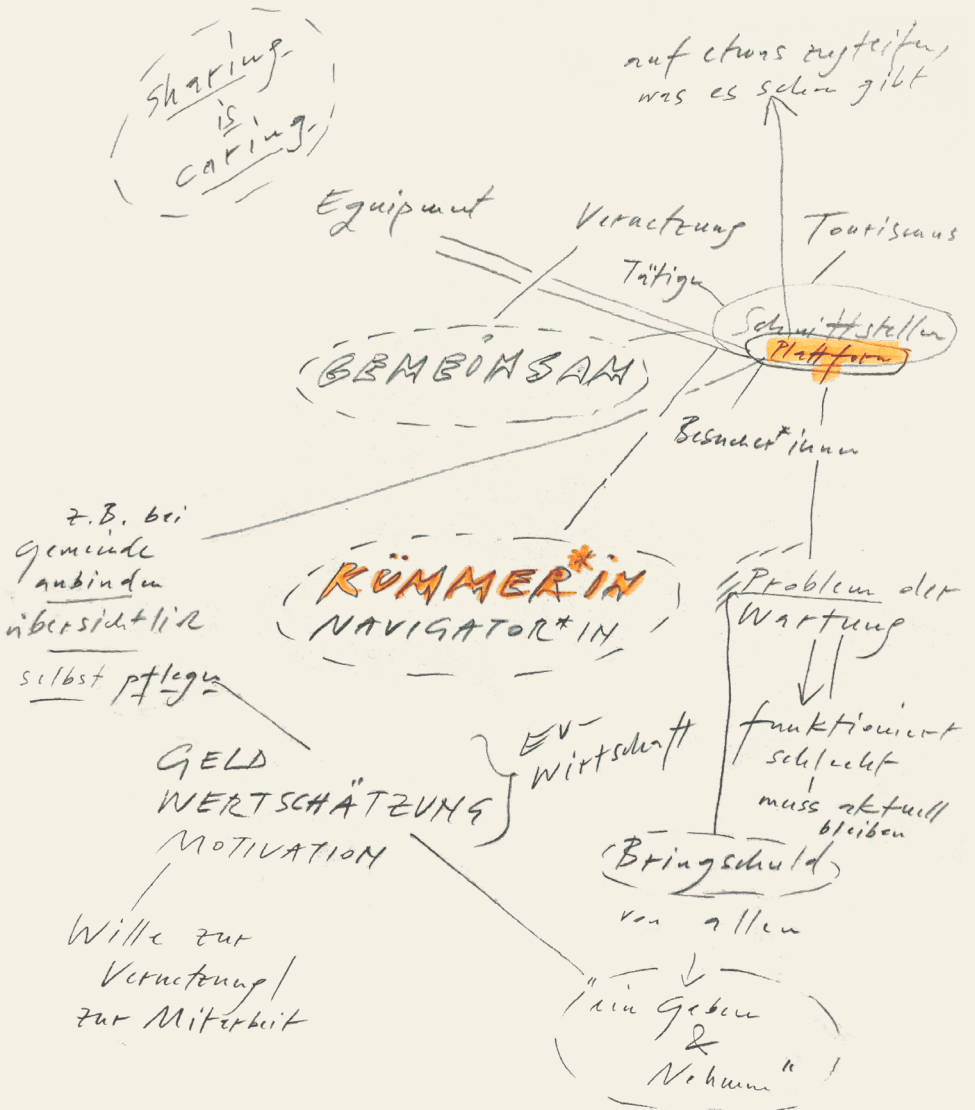 sharing
is
caring
auf etwas zugreifen,
was es schon gibt
Equipment
Vernetzung
Tourismus
Tätige
Schnittstellen
Plattform
GEMEINSAM
Besucher*innen
z.B. bei
Gemeinde
anbinden
übersichtlich
selbst pflegen
KÜMMER*IN
NAVIGATOR*IN
Problem der
Wartung
funktioniert
schlecht
muss aktuell
bleiben
GELD
WERTSCHÄTZUNG
MOTIVATION
EV-
Wirtschaft
Bringschuld
von allen
Wille zur
Vernetzung/
zur Mitarbeit
"ein Geben
&
Nehmen"